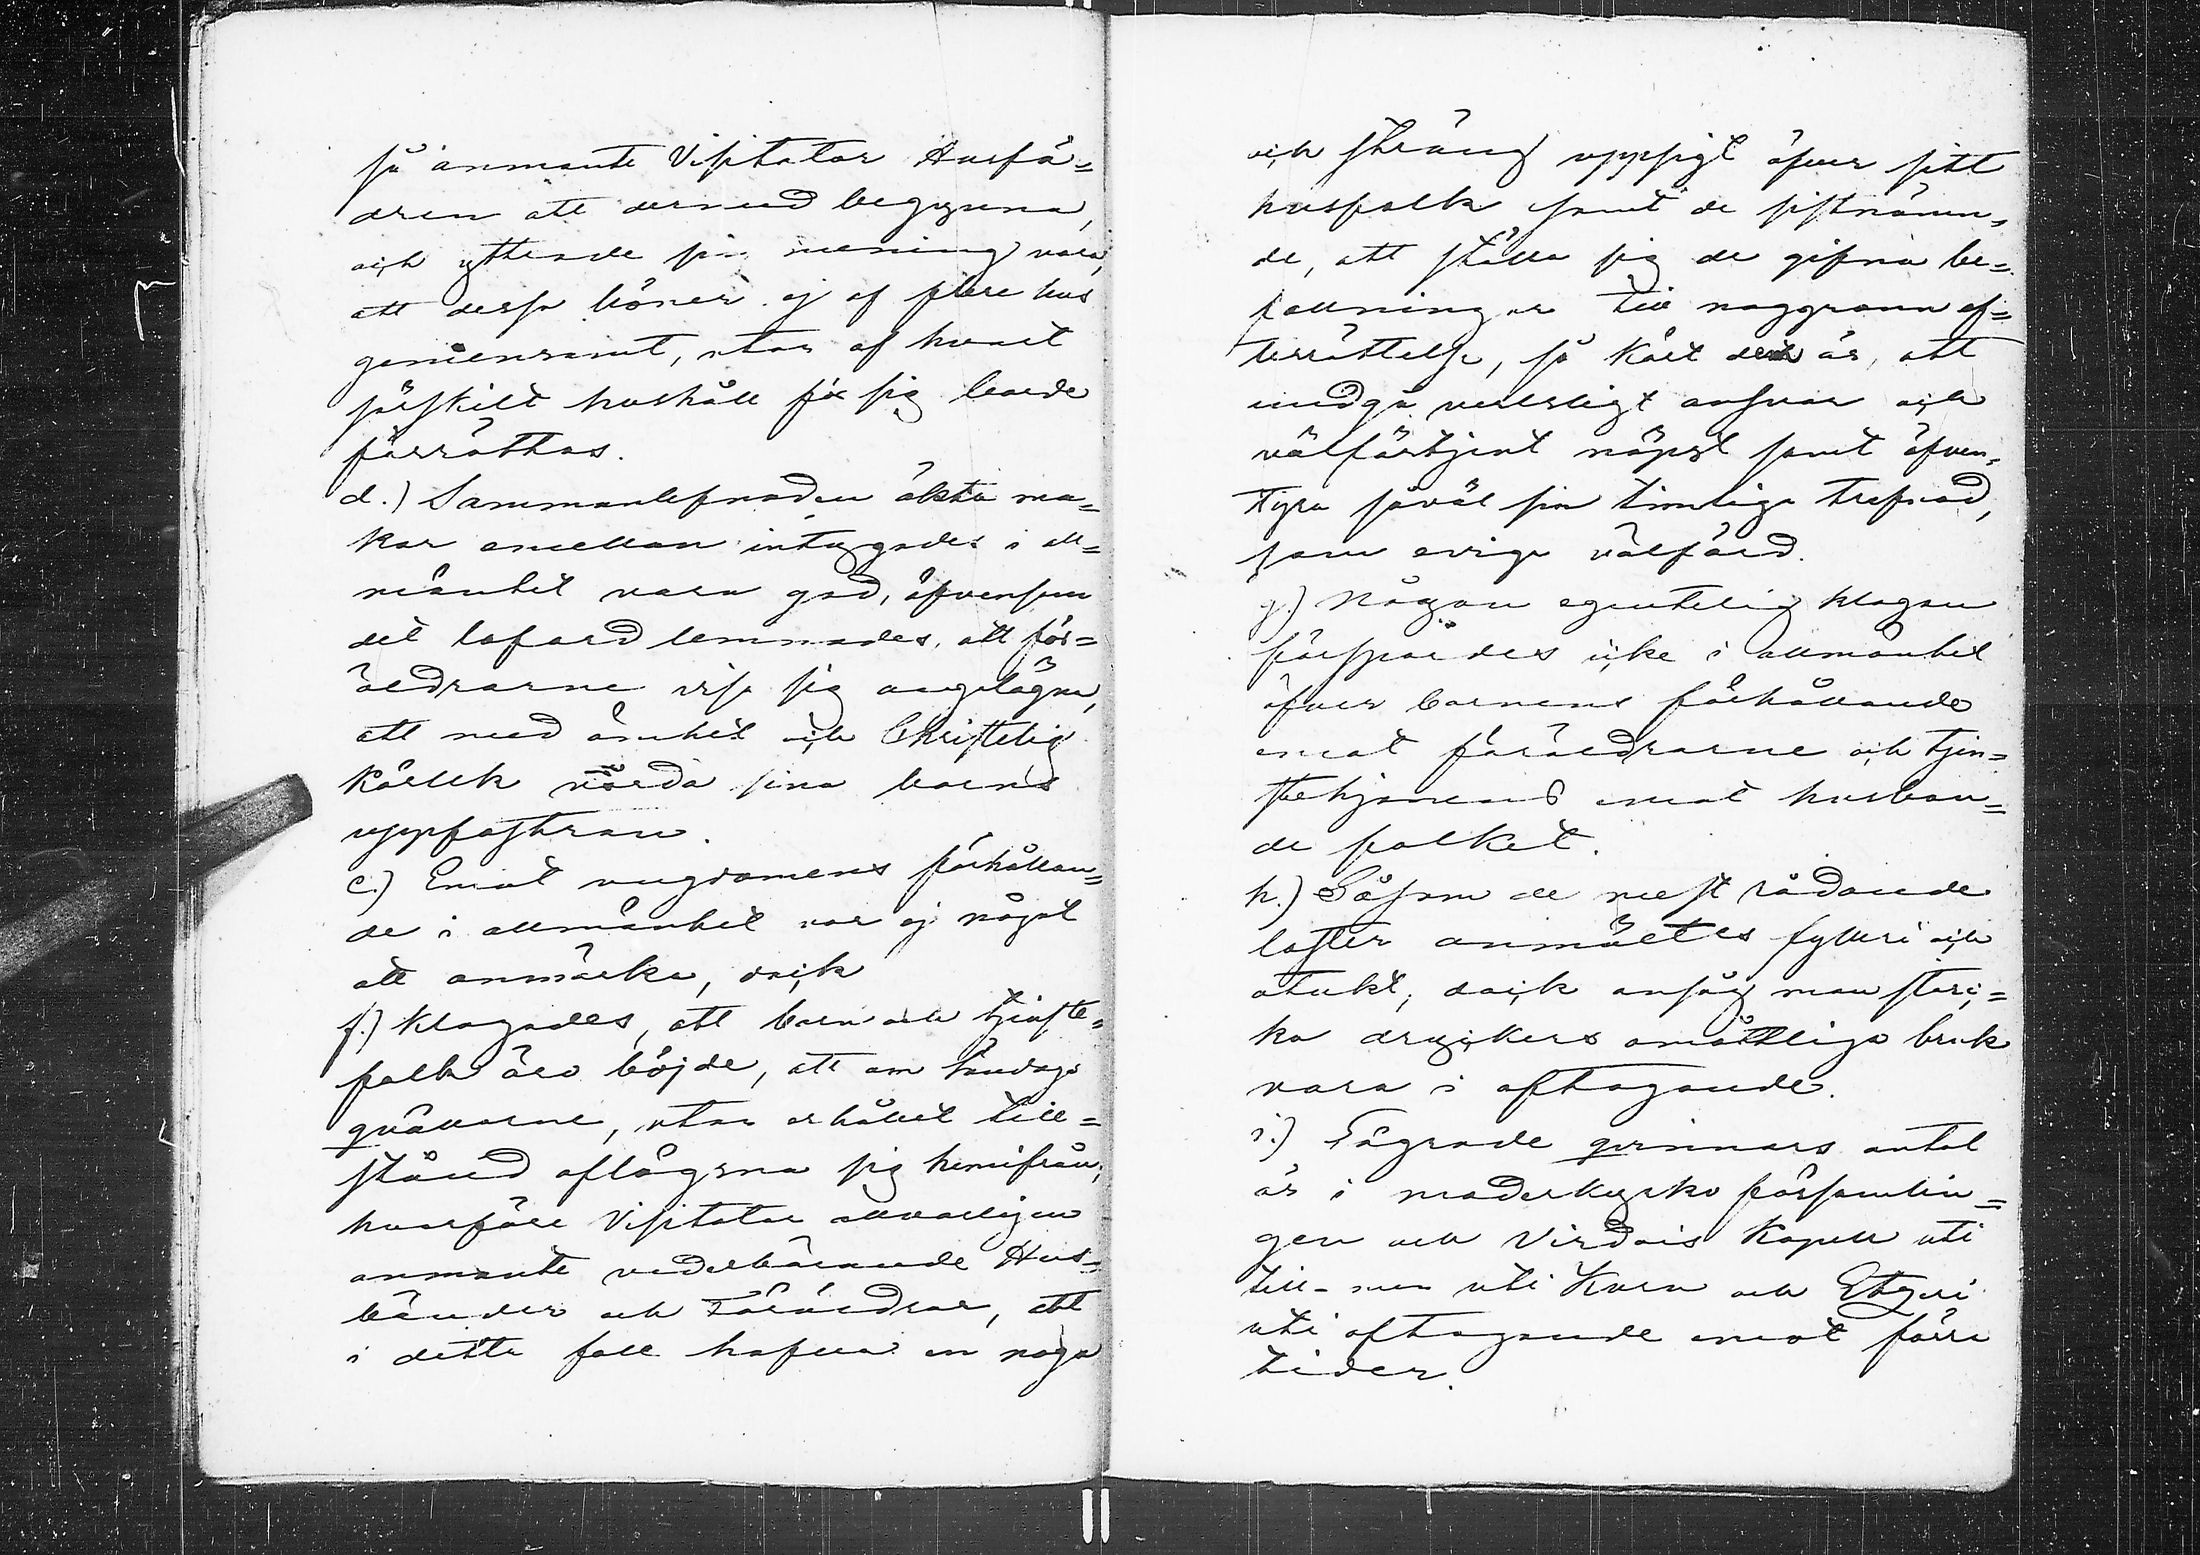 så anmante Visitator Husfä=
dren att dermed begynna,
och yttrade sin mening vara,
att dessa böner ej af flere hus
gemensamt, utan af hvart
särskilt hushåll för sig borde
förrättas.
d.) Sammanlefnaden äkta ma=
kar emellan intygades i all=
mänhet vara god, äfvensom
det loford lemnades, att för=
äldrarne vise sig angelägna,
att med ömhet och Christelig
kärlek vårda sina barns
uppfostran.
e.) Emot ungdomens förhållan=
de i allmänhet var ej något
att anmärka, dock
f.) Klagades, att barn och tjenste=
folk äro böjde, att om söndags
qvällarne, utan erhållet till=
stånd aflägsna sig hemifrån,
hvarföre Visitator allvarligen
anmante vederbörande Hus=
bönder och Föräldrar, att
i detta fall hafva en noga
och sträng uppsigt öfver sitt
husfolk samt de sistnämn=
de, att ställa sig de gifna be=
fallningar till noggrann ef=
terrättelse, så kärt dem är, att
undgå verldsligt ansvar och
välförtjent näpst samt äfven=
tyra såväl sin timliga trefnad,
som eviga välfärd.
g.) Någon egentelig klagan
förspordes icke i allmänhet
öfver barnens förhållande
emot föräldrarne och tjen=
stehjonens emot husbon=
de folket.
h.) Såsom de mest rådande
laster anmältes fylleri och
otukt, dock ansåg man star=
ka dryckers omåttliga bruk
vara i aftagande.
i.) Lägrade qvinnors antal
är i moderkyrko församlin=
gen och Virdois Kapell uti
till- men uti Kuru och Etzeri
uti aftagande emot förra
tider.